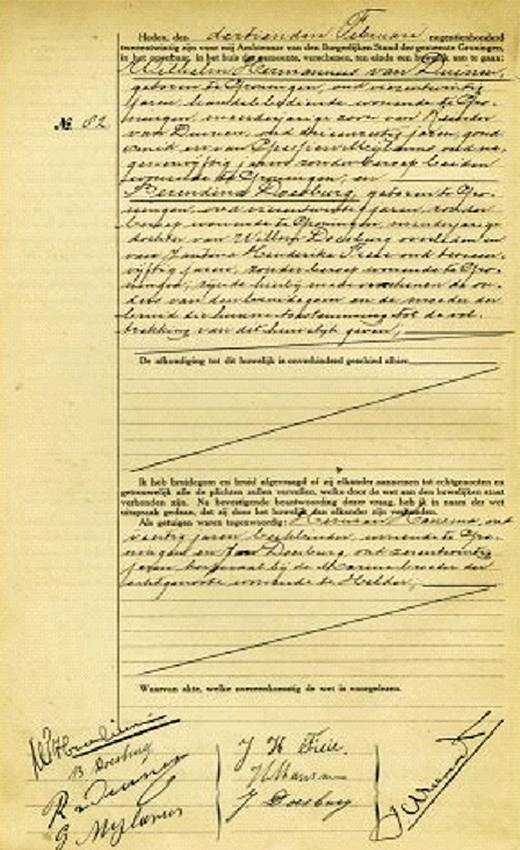 Heden, den dertienden Februari negentienhonderd
tweeentwintig zijn voor mij Ambtenaar van den Burgerlijken Stand der gemeente Groningen,
in het openbaar, in het huis der gemeente, verschenen, ten einde een huwelijk aan te gaan:
Wilhelm Hermannus van Duinen,
geboren te Groningen, oud vierentwintig
jaren, handelsbediende wonende te Gro-
№ 82
ningen, meerderjarige zoon van Reinder
van Duinen, oud jaren, goud
en van oud ne-
genenvijftig jaren zonder beroep beiden
wonende te Groningen; en
Berendina Doesburg, geboren te Gro-
ningen, oud jaren, zonder
beroep wonende te Groningen, meerderjarige
dochter van Willem Doesburg overleden en
van Hendrika oud
vijftig jaren, zonder beroep wonende te Gro-
ningen; zijnde hierbij mede verschenen de ou-
ders van den bruidegom en de moeder der
bruid die hunne toestemming tot de vol-
trekking van dit huwelijk geven;
De afkondiging tot dit huwelijk is onverhinderd geschied alhier.
Ik heb bruidegom en bruid afgevraagd of zij elkander aannemen tot echtgenooten en
getrouwelijk alle de plichten zullen vervullen, welke door de wet aan den huwelijken staat
verbonden zijn. Na bevestigende beantwoording dezer vraag, heb ik in naam der wet
uitspraak gedaan, dat zij door het huwelijk aan elkander zijn verbonden.
Als getuigen waren tegenwoordig: Herman oud
veertig jaren wonende te Gro-
ningen en Jan Doesburg, oud zevenentwintig
jaren korporaal bij de Marine broeder der
echtgenoote, wonende te Helder;
Waarvan akte, welke overeenkomstig de wet is voorgelezen.
B Doesburg
R v Duinen
G. Mylanus
J H
J Doesburg